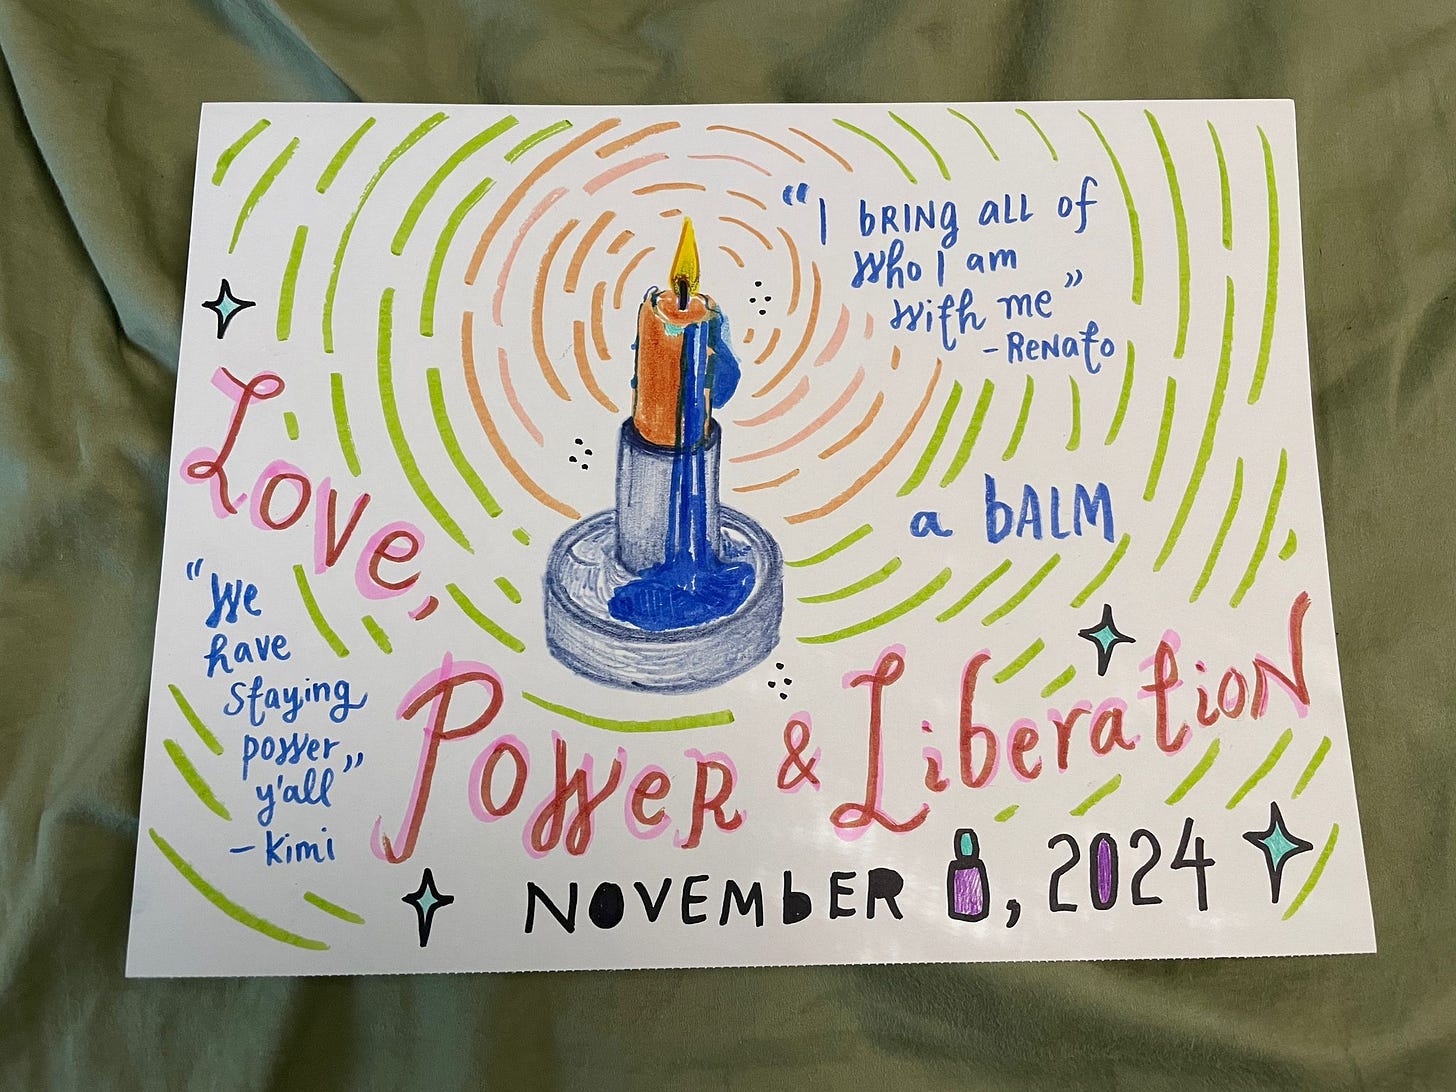 "I bRING ALL of
Who I am
with me"
- RENATO
Love,
a bALM
"We
have
Staying
power
y'all"
- Kimi
Power & Liberation
NOVEMbER 8, 2024